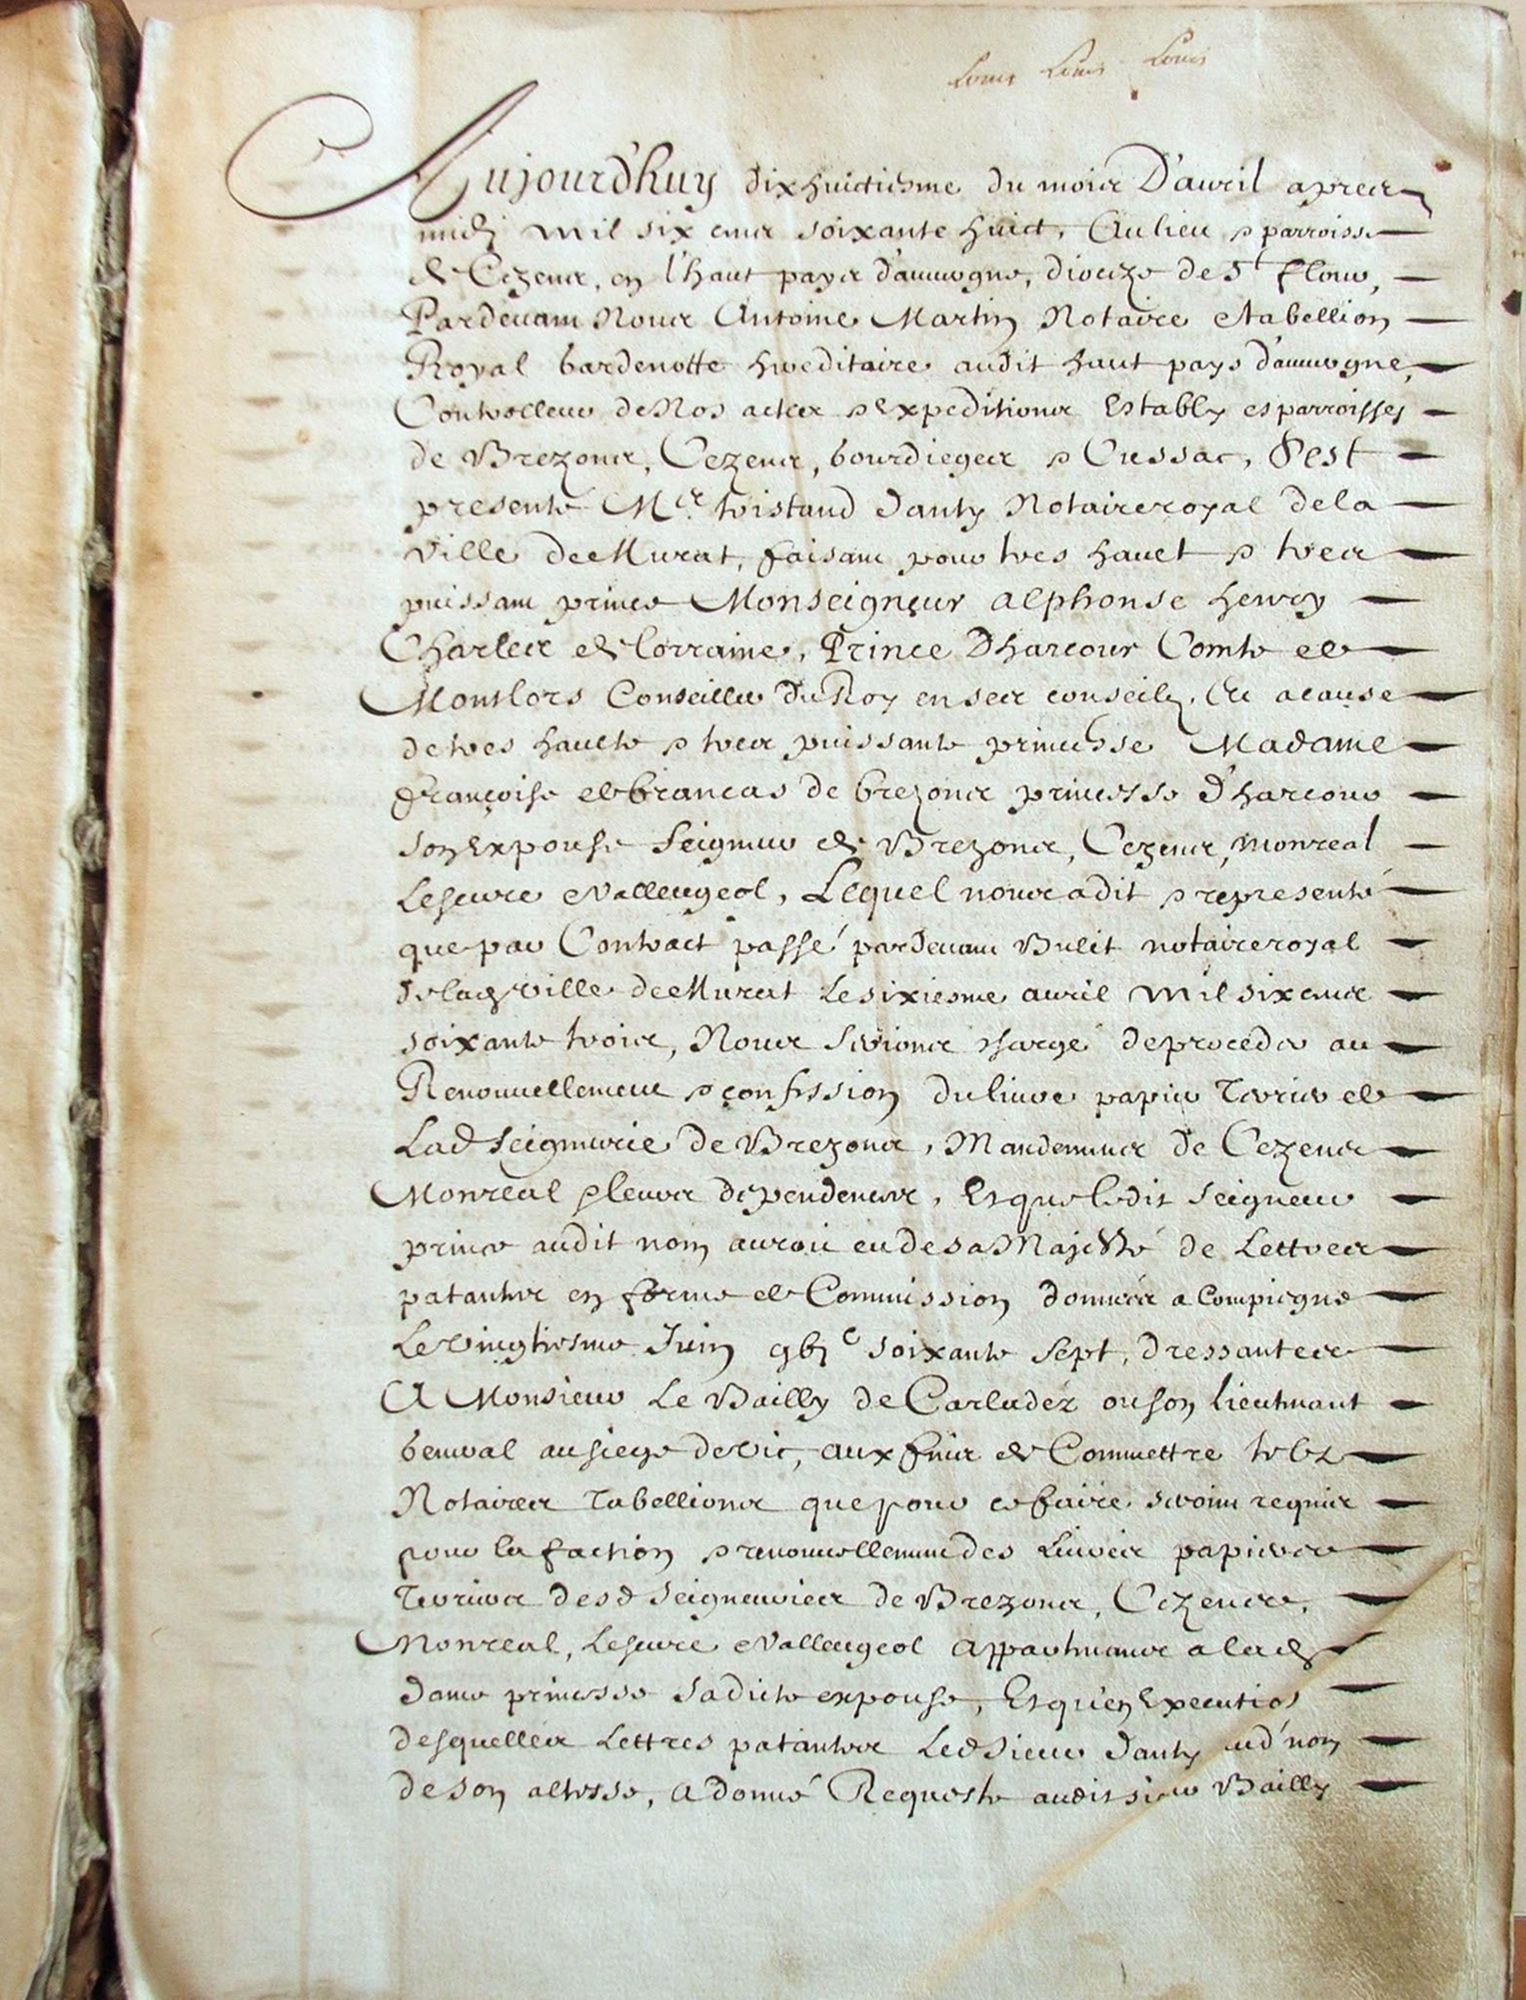 Louis Louis Louis
Aujourd'huy dixhuictiesme du mois D'auril apres
midy mil six cens soixante huict, Au lieu & parroisse
de Cezens, en l'haut pays d'auuergne, dioceze de St flour,
Pardeuant Nous Antoine Martin Notaire & tabellion
Royal gardenotte hereditaire audit haut pays d'auuergne,
Controlleur de Nos actes & Expeditions Estably es parroisses
de Brezons, Cezens, bourdieges & Cussac, S'est
presenté Me tristand Danty Notaire royal de la
ville de Murat, faisant pour tres hauct & tres
puissant prince Monseigneur alphonse henry
Charles de lorraine, Prince D'harcour Comte de
Montlors Conseiller du Roy en ses conseilz, Et a cause
de tres haulte & tres puissante princesse Madame
françoise de brancas de brezons princesse d'harcour
son Expouse Seigneur de Brezons, Cezens, Monreal
Lescure & Valleugeol, Lequel nous a dit & representé
que par Contract passé pardeuant Bulit notaire royal
de lad ville de Murat Le sixiesme auril mil six cens
soixante trois, Nous serions chargé de proceder au
Renouuellement & confession du liure papier terrier de
Lad Seigneurie de Brezons, Mandemens de Cezens
Monreal & leurs dependences, Et que ledit Seigneur
prince audit nom auroit eu de sa Majesté de Lettres
patantes en forme de Commission données a Compiegne
Le vingtiesme Juin gbjc soixante sept, dressantes
A Monsieur Le Bailly de Carladéz ou son lieutenant
general au siege de vic, aux fins de Commettre telz
Notaires tabellions que pour ce faire seroint requis
pour la faction & renouuellement des Liures papiers
terriers desd seigneuries de Brezons, Cezens,
Monreal, Lescure & Valleugeol appartenans a lad
dame princesse sadicte expouse, Et qu'en Execution
desquelles Lettres patantes Led sieur Danty aud nom
de son altesse, a donné Requeste audit sieur Bailly